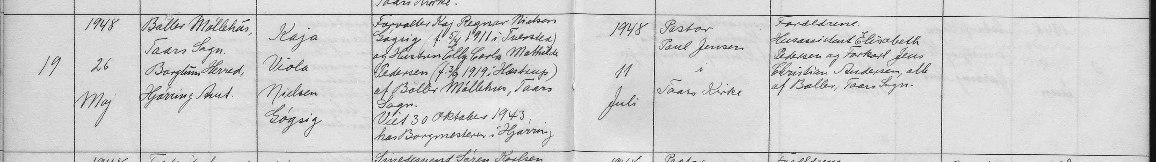 Taars Kirke.
19
1948
26
Maj
Baller Møllehus,
Taars Sogn.
Børglum Herred,
Hjørring Amt.
Kaja
Viola
Nielsen
Gøgsig
Forvalter Kaj Regner Nielsen
Gøgsig (f. 5/5 1911 i Tversted)
og Hustru Elly Carla Mathilde
Pedersen (f. 1919 i Hæstrup)
af Baller Møllehus, Taars
Sogn.
Viet 30 Oktober 1943,
hos Borgmesteren i Hjørring
1948
11
Juli
Pastor
Paul Jensen
i
Taars Kirke
Forældrene.
Husassistent Elisabeth
Pedersen og Forkarl Jens
Christian Andersen, alle
af Baller, Taars Sogn.
1948
Smedesvend Søren
Pastor
Forældrene